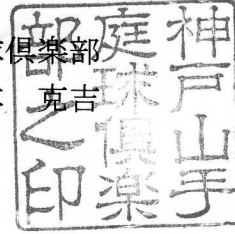 倶楽部
克吉
神戸山手
庭球倶楽
部之印